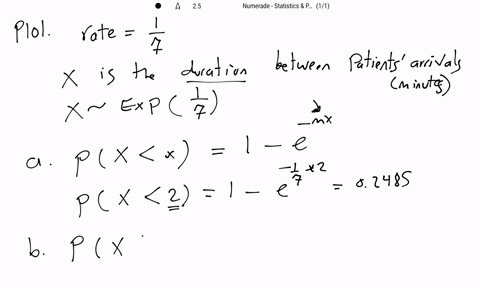 2.5 Numerade - Statistics & P... (1/1)
P101. rate = 1/7
X is the duration between Patients' arrivals
(minutes)
X ~ Exp(1/7)
a. P(X < x) = 1 - e^-mx
P(X < 2) = 1 - e^-1/7*2 = 0.2485
b. P(X